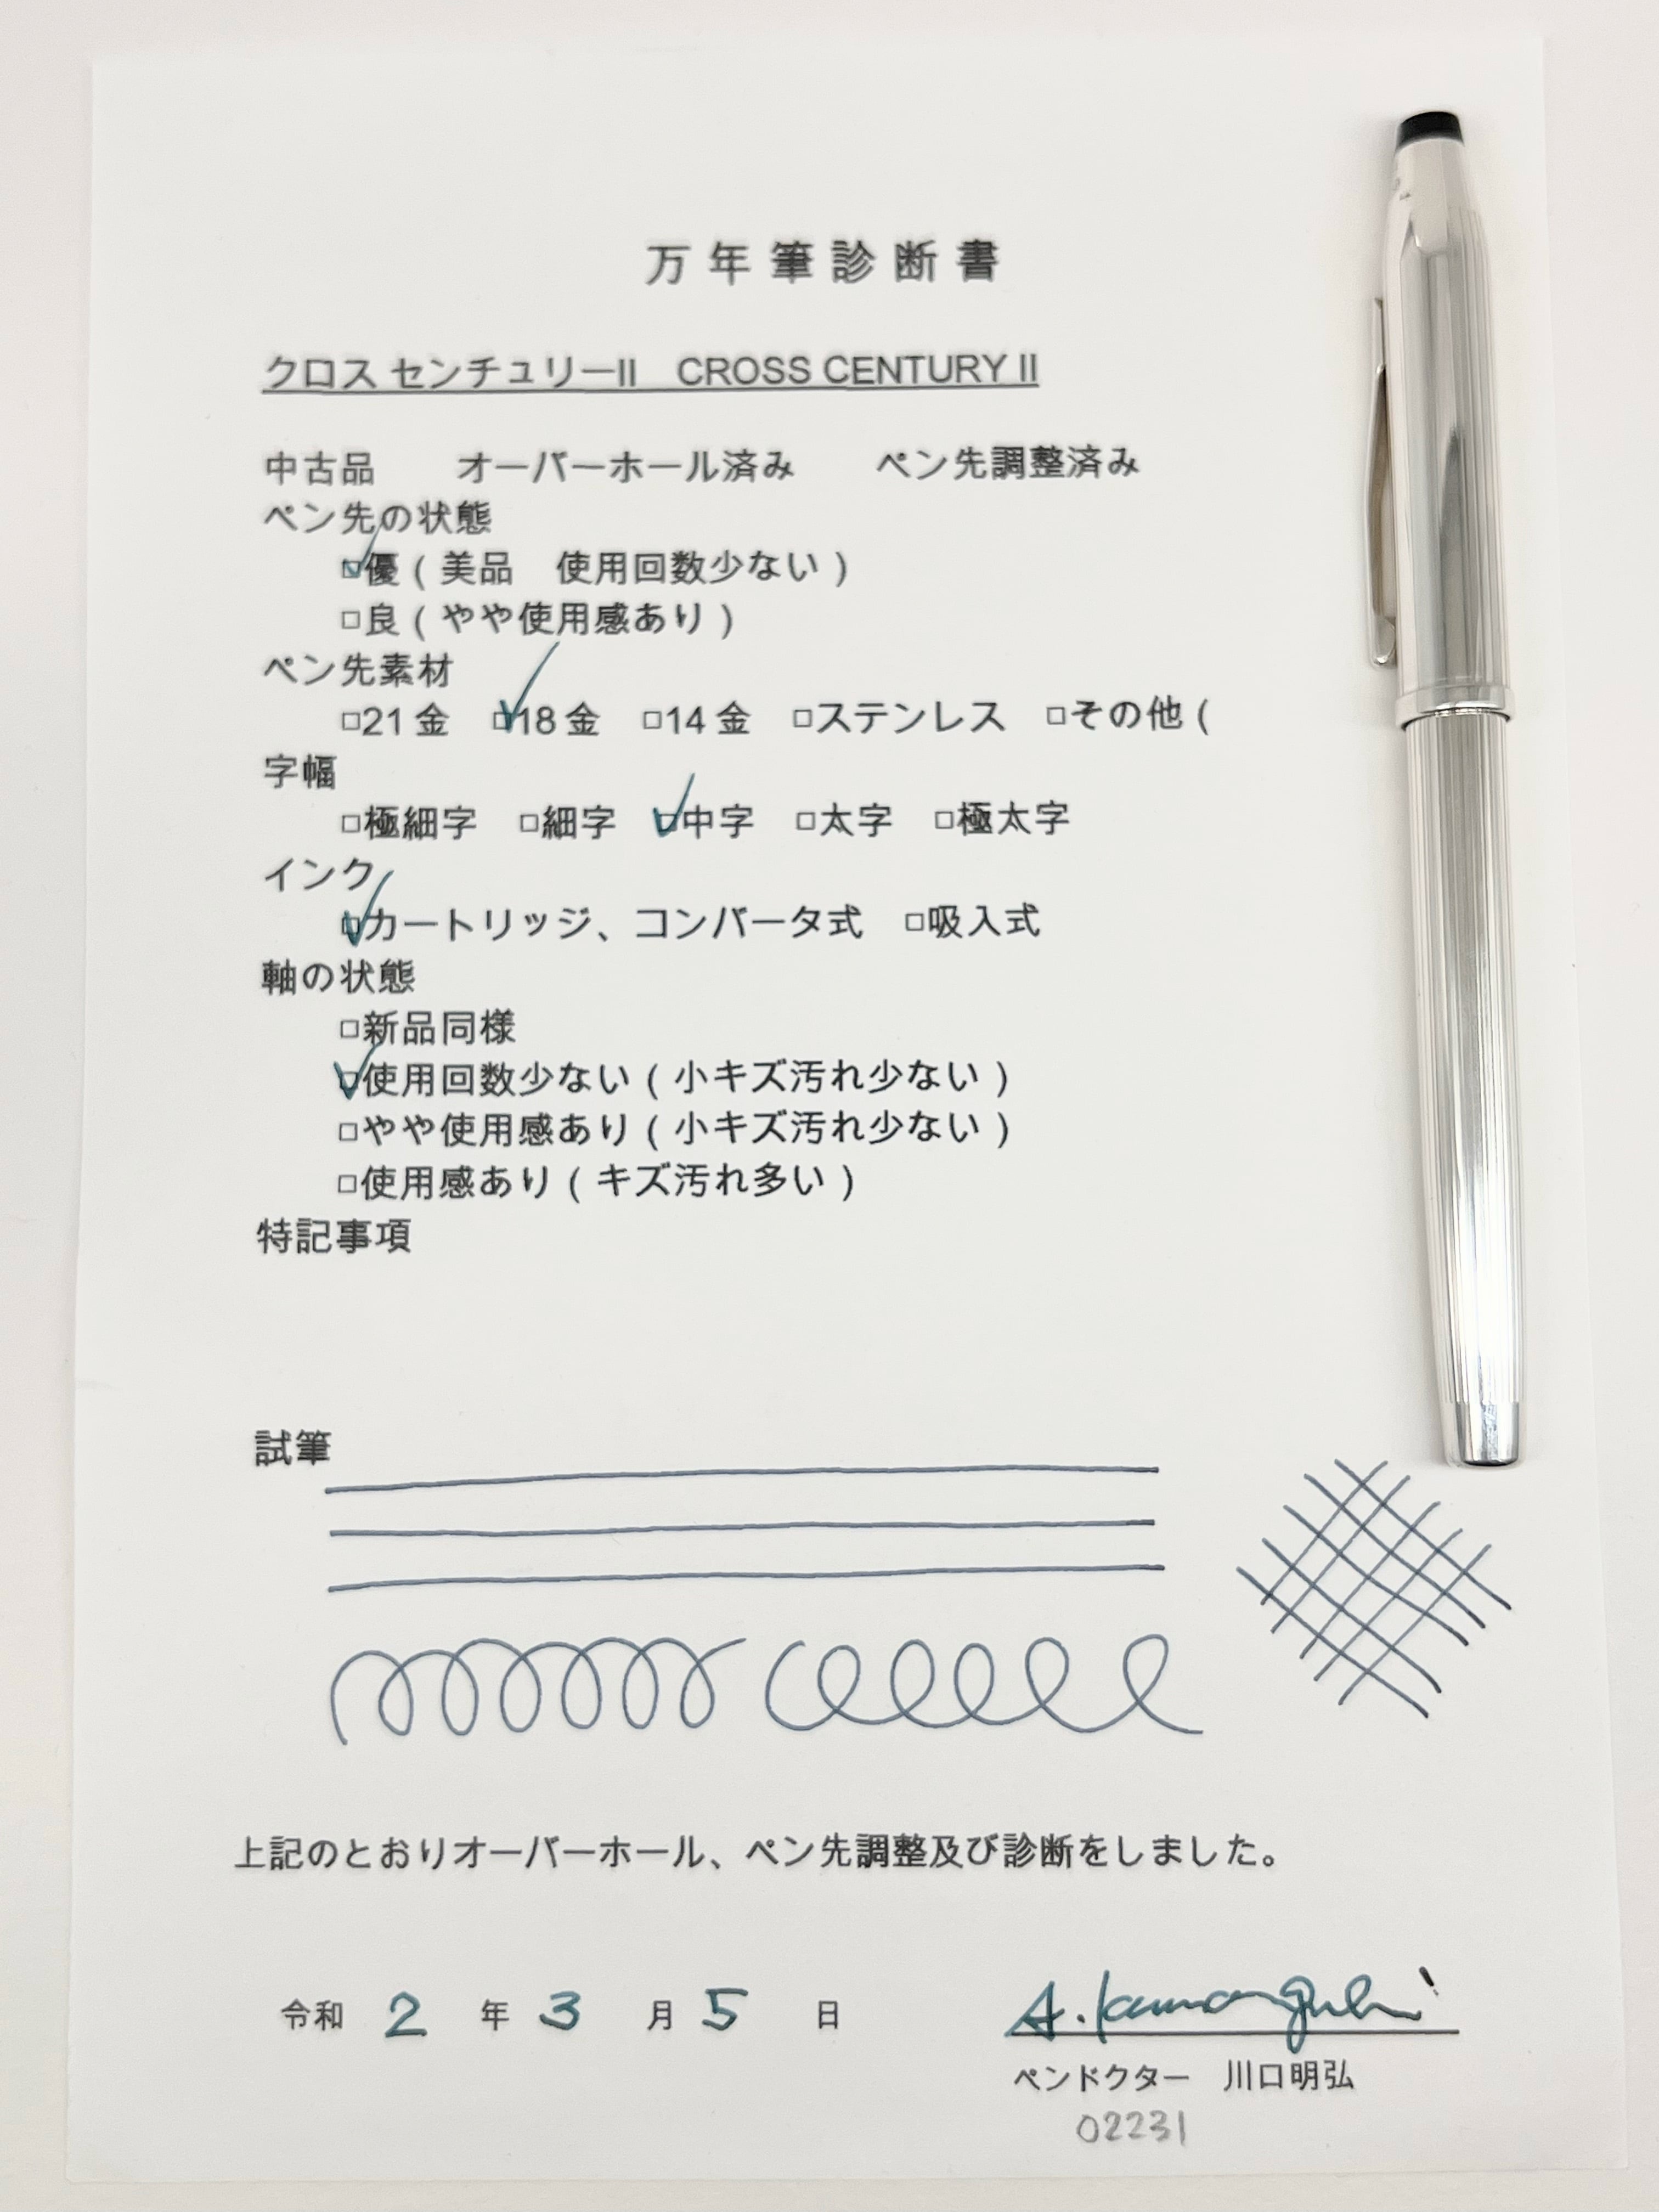 万年筆診断書
クロス センチュリーII　CROSS CENTURY II
中古品　　オーバーホール済み　　ペン先調整済み
ペン先の状態
☑優（美品　使用回数少ない）
□良（やや使用感あり）
ペン先素材
□21金　☑18金　□14金　□ステンレス　□その他（
字幅
□極細字　□細字　☑中字　□太字　□極太字
インク
☑カートリッジ、コンバータ式　□吸入式
軸の状態
□新品同様
☑使用回数少ない（小キズ汚れ少ない）
□やや使用感あり（小キズ汚れ少ない）
□使用感あり（キズ汚れ多い）
特記事項
試筆
上記のとおりオーバーホール、ペン先調整及び診断をしました。
令和 2 年 3 月 5 日
A. Kawaguchi
ペンドクター　川口明弘
02231